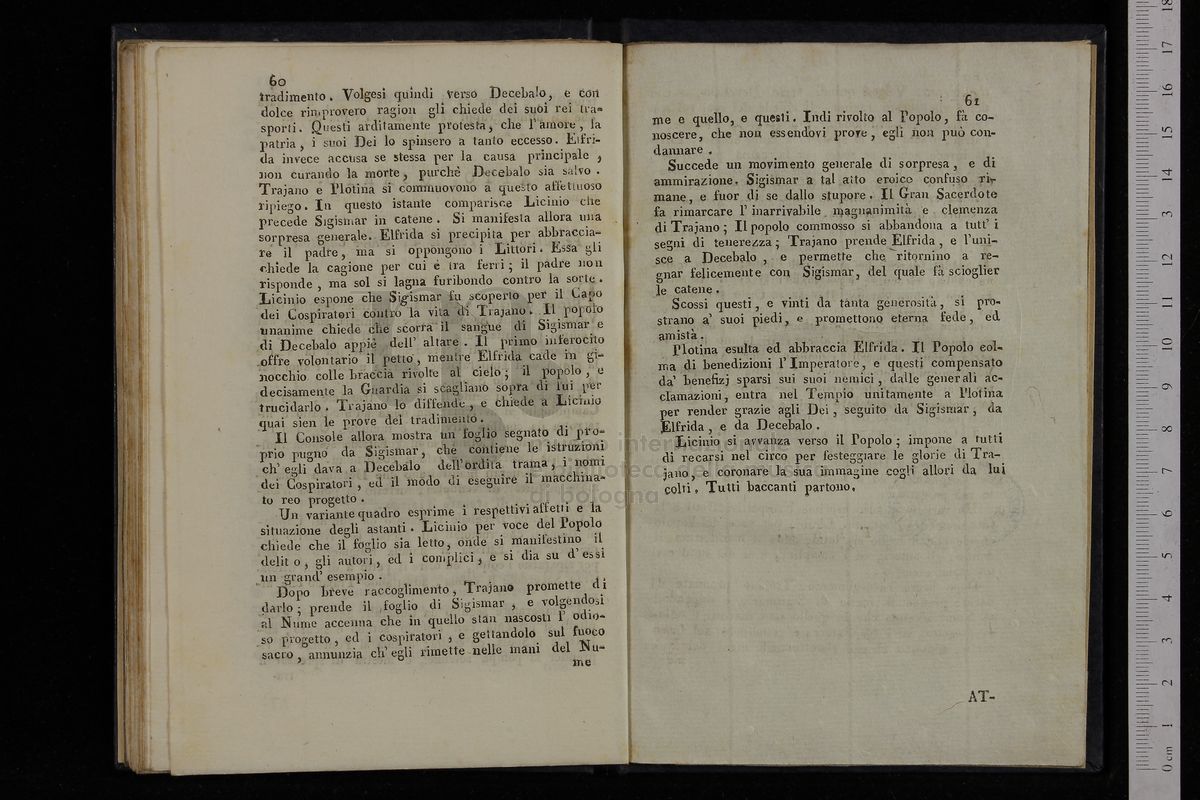 60
tradimento. Volgesi quindi verso Decebalo, e con
dolce rimprovero ragion gli chiede dei suoi rei tra-
sporti. Questi arditamente protesta, che l'amore, la
patria, i suoi Dei lo spinsero a tanto eccesso. Elfri-
da invece accusa se stessa per la causa principale,
non curando la morte, purchè Decebalo sia salvo.
Trajano e Plotina si commuovono a questo affettuoso
ripiego. In questo istante comparisce Licinio che
precede Sigismar in catene. Si manifesta allora una
sorpresa generale. Elfrida si precipita per abbraccia-
re il padre, ma si oppongono i Littori. Essa gli
chiede la cagione per cui è tra ferri; il padre non
risponde, ma sol si lagna furibondo contro la sorte.
Licinio espone che Sigismar fu scoperto per il Capo
dei Cospiratori contro la vita di Trajano. Il popolo
unanime chiede che scorra il sangue di Sigismar e
di Decebalo appiè dell' altare. Il primo inferocito
offre volontario il petto, mentre Elfrida cade in gi-
nocchio colle braccia rivolte al cielo; il popolo, e
decisamente la Guardia si scagliano sopra di lui per
trucidarlo. Trajano lo diffende, e chiede a Licinio
quai sien le prove del tradimento.
Il Console allora mostra un foglio segnato di pro-
prio pugno da Sigismar, che contiene le istruzioni
ch' egli dava a Decebalo dell'ordita trama, i nomi
dei Cospiratori, ed il modo di eseguire il macchina-
to reo progetto.
Un variante quadro esprime i respettivi affetti e la
situazione degli astanti. Licinio per voce del Popolo
chiede che il foglio sia letto, onde si manifestino il
delit o, gli autori, ed i complici, e si dia su d' essi
un grand' esempio.
Dopo breve raccoglimento, Trajano promette di
darlo; prende il foglio di Sigismar, e volgendosi
al Nume accenna che in quello stan nascosti l' odio-
so progetto, ed i cospiratori, e gettandolo sul fuoco
sacro, annunzia ch' egli rimette nelle mani del Nu-
me
61
me e quello, e questi. Indi rivolto al Popolo, fà co-
noscere, che non essendovi prove, egli non può con-
dannare.
Succede un movimento generale di sorpresa, e di
ammirazione. Sigismar a tal atto eroico confuso ri-
mane, e fuor di se dallo stupore. Il Gran Sacerdote
fa rimarcare l' inarrivabile magnanimità e clemenza
di Trajano; Il popolo commosso si abbandona a tutt' i
segni di tenerezza; Trajano prende Elfrida, e l'uni-
sce a Decebalo, e permette che ritornino a re-
gnar felicemente con Sigismar, del quale fà scioglier
le catene.
Scossi questi, e vinti da tanta generosità, si pro-
strano a' suoi piedi, e promettono eterna fede, ed
amistà.
Plotina esulta ed abbraccia Elfrida. Il Popolo col-
ma di benedizioni l'Imperatore, e questi compensato
da' benefizj sparsi sui suoi nemici, dalle generali ac-
clamazioni, entra nel Tempio unitamente a Plotina
per render grazie agli Dei, seguito da Sigismar, da
Elfrida, e da Decebalo.
Licinio si avvanza verso il Popolo; impone a tutti
di recarsi nel circo per festeggiare le glorie di Tra-
jano, e coronare la sua immagine cogli allori da lui
colti. Tutti baccanti partono.
AT-
museo internazionale
e biblioteca della musica
di bologna
0 cm 1 2 3 4 5 6 7 8 9 10 11 12 13 14 15 16 17 18